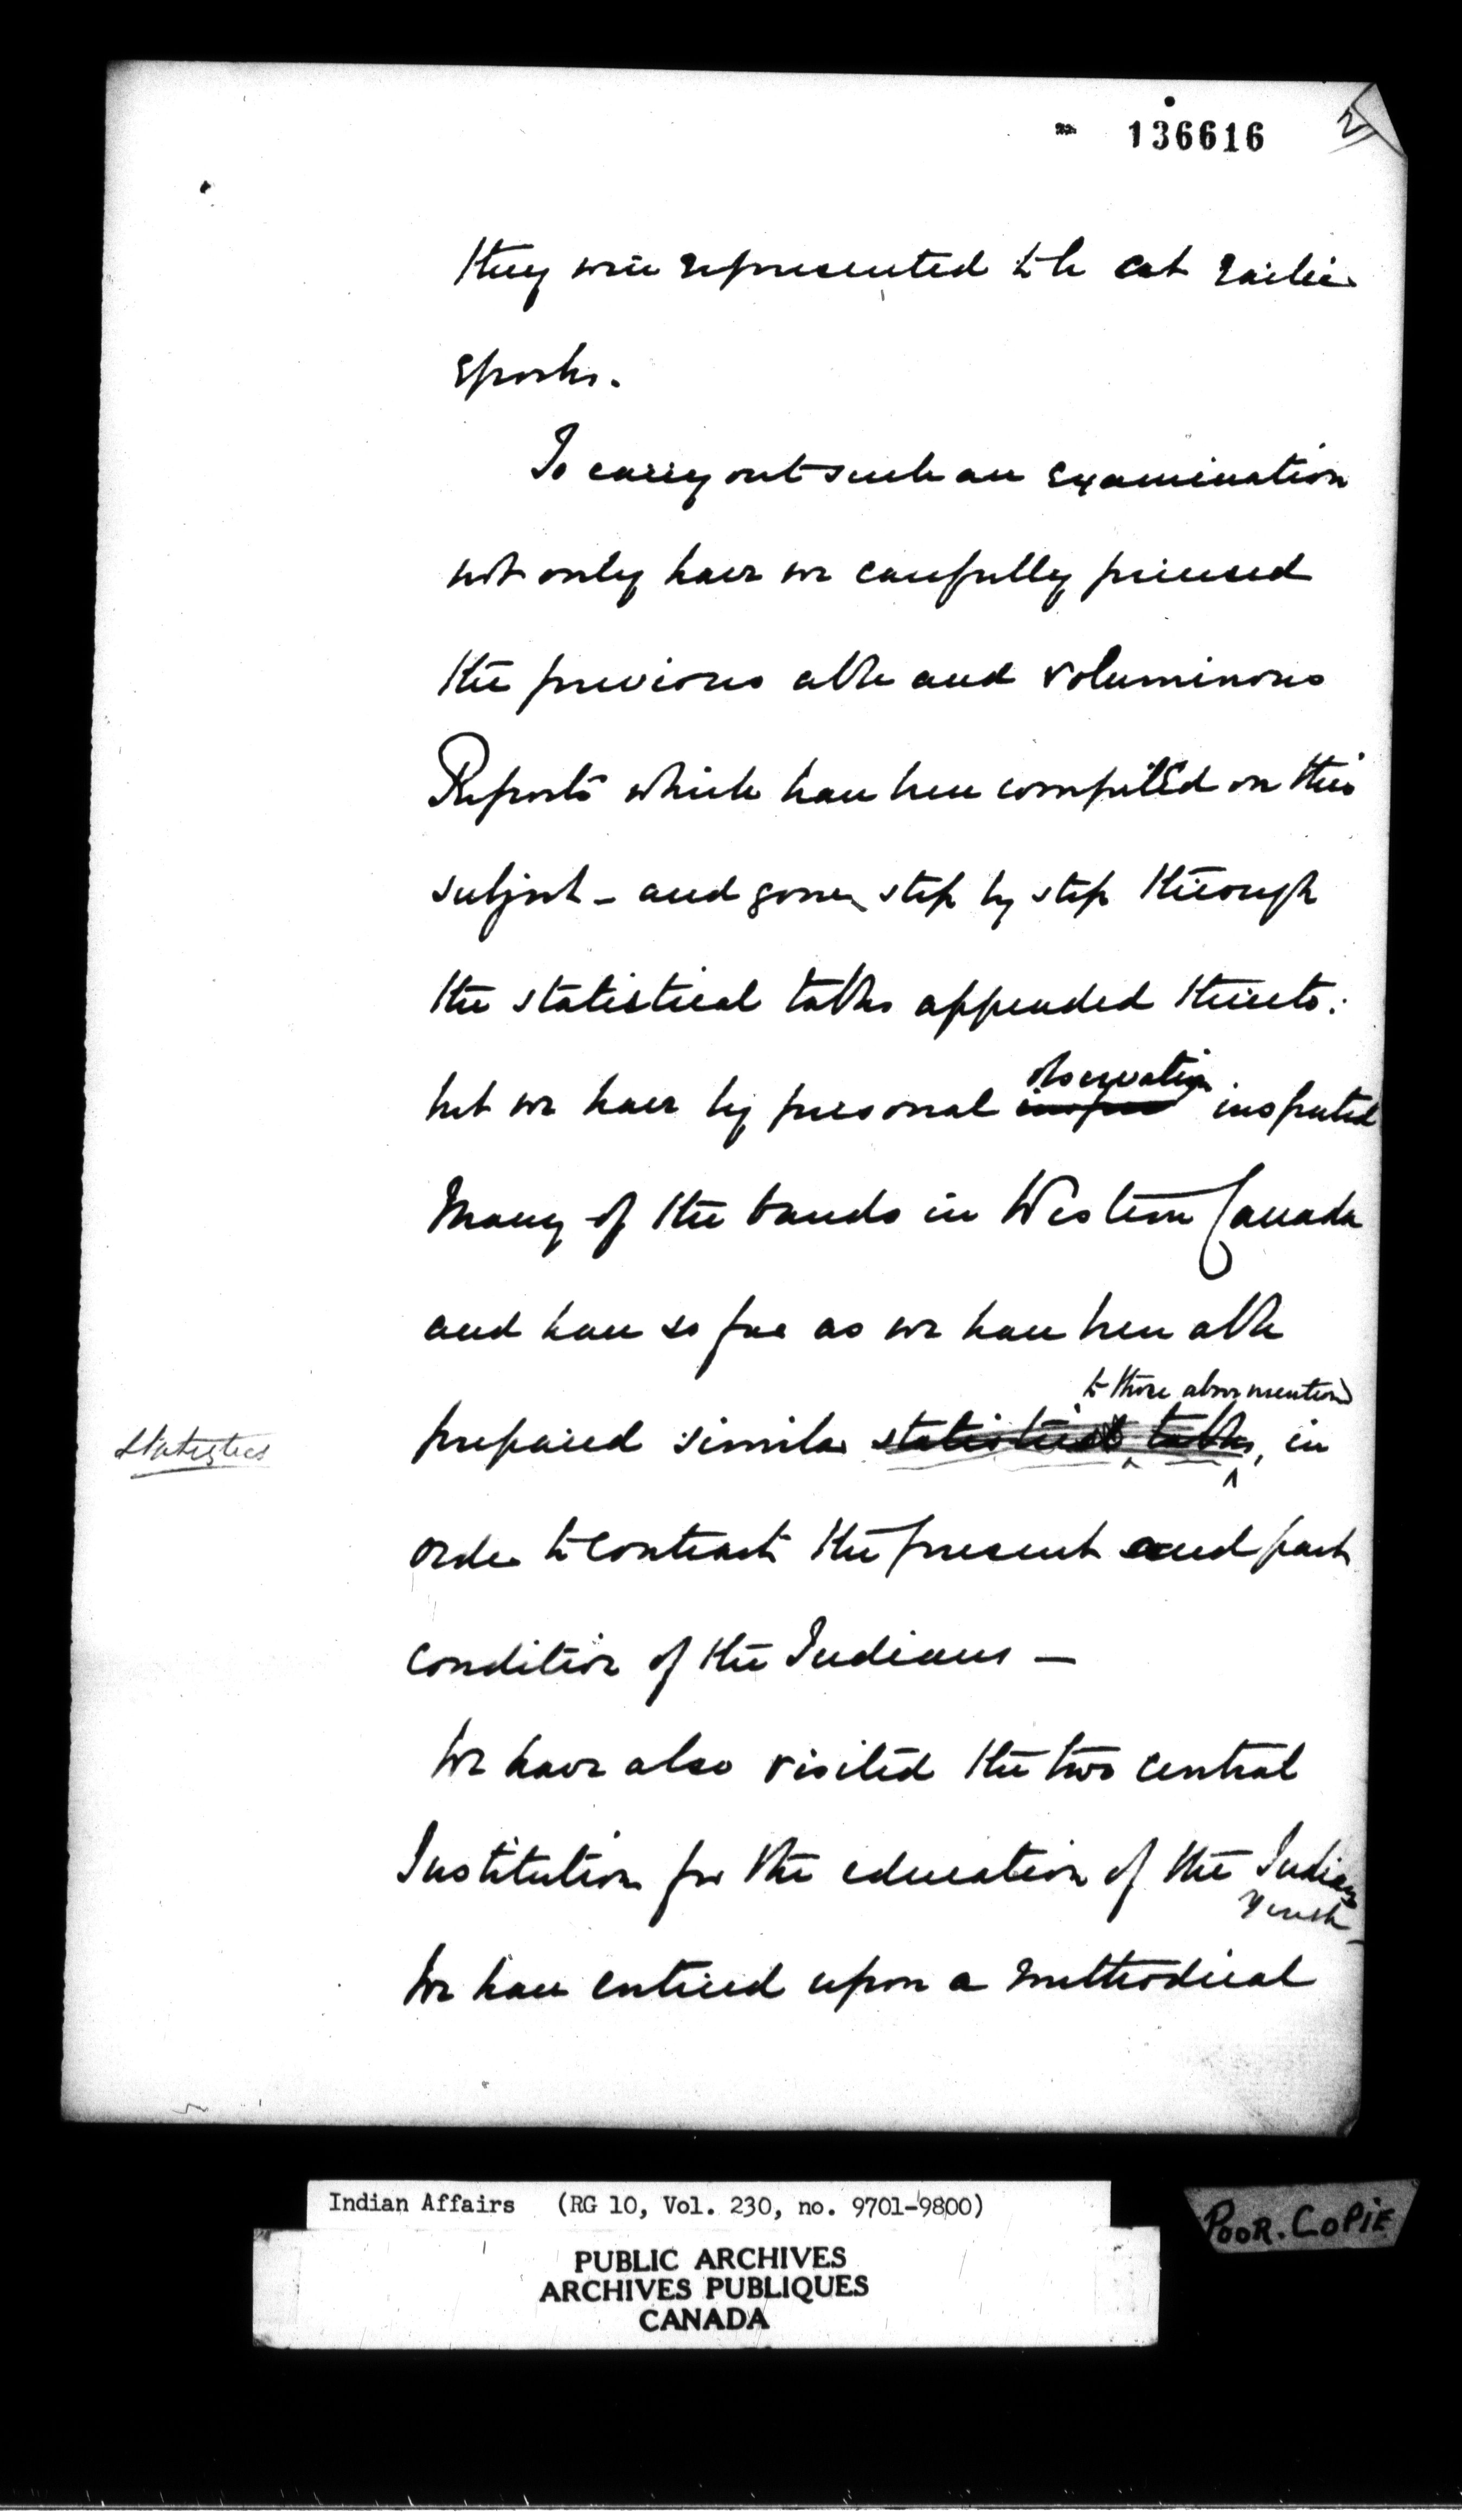 136616
2
they were represented to be at earlier
Epochs.
To carry out such an Examination
not only have we carefully perused
the previous able and voluminous
Reports which have been compiled on this
subject - and gone step by step through
the statistical tables appended thereto:
observation
but we have by personal inspected
Many of the bands in Western Canada
and have so far as we have been able
to those above mentioned
Statistics
prepared similar statistical tables, in
order to contrast the present and past
condition of the Indians —
We have also visited the two central
Institution for the education of the Indian
Youth -
We have entered upon a methodical
Indian Affairs (RG 10, Vol. 230, no. 9701-9800)
POOR. COPIE
PUBLIC ARCHIVES
ARCHIVES PUBLIQUES
CANADA